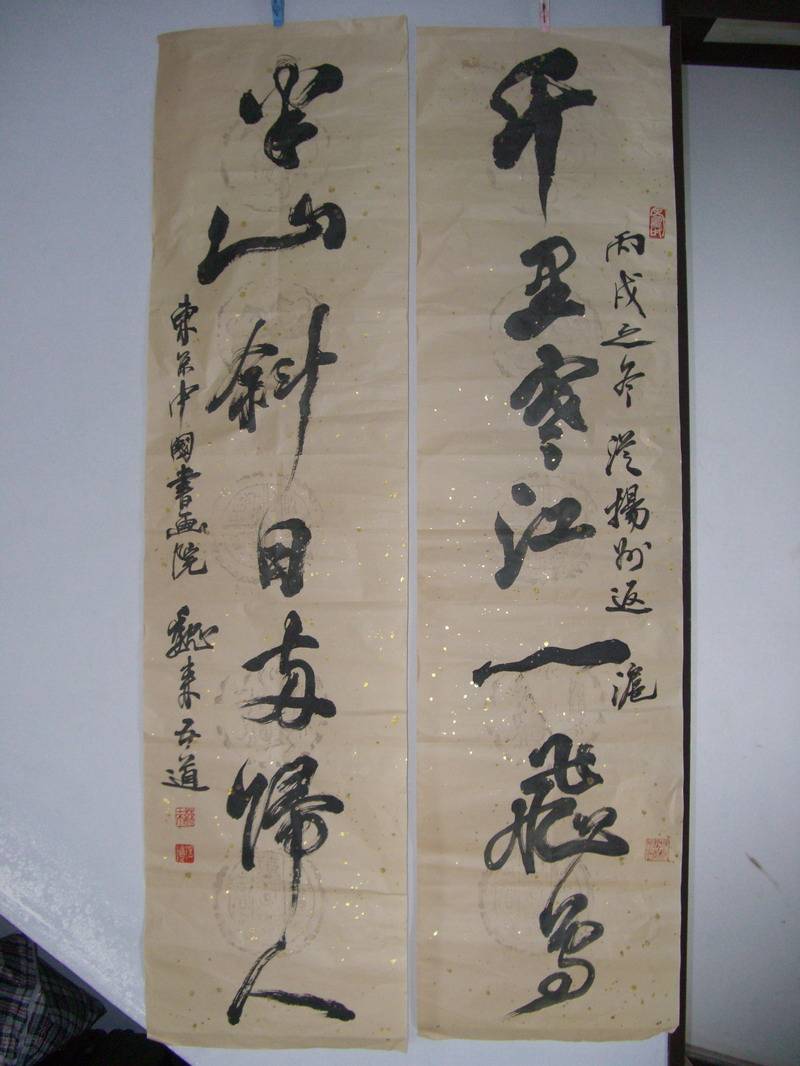 丙戌之冬 從揚州返
滬
千里寒江一飛鳥
半山斜日两帰人
東京中國書画院 魏来 道